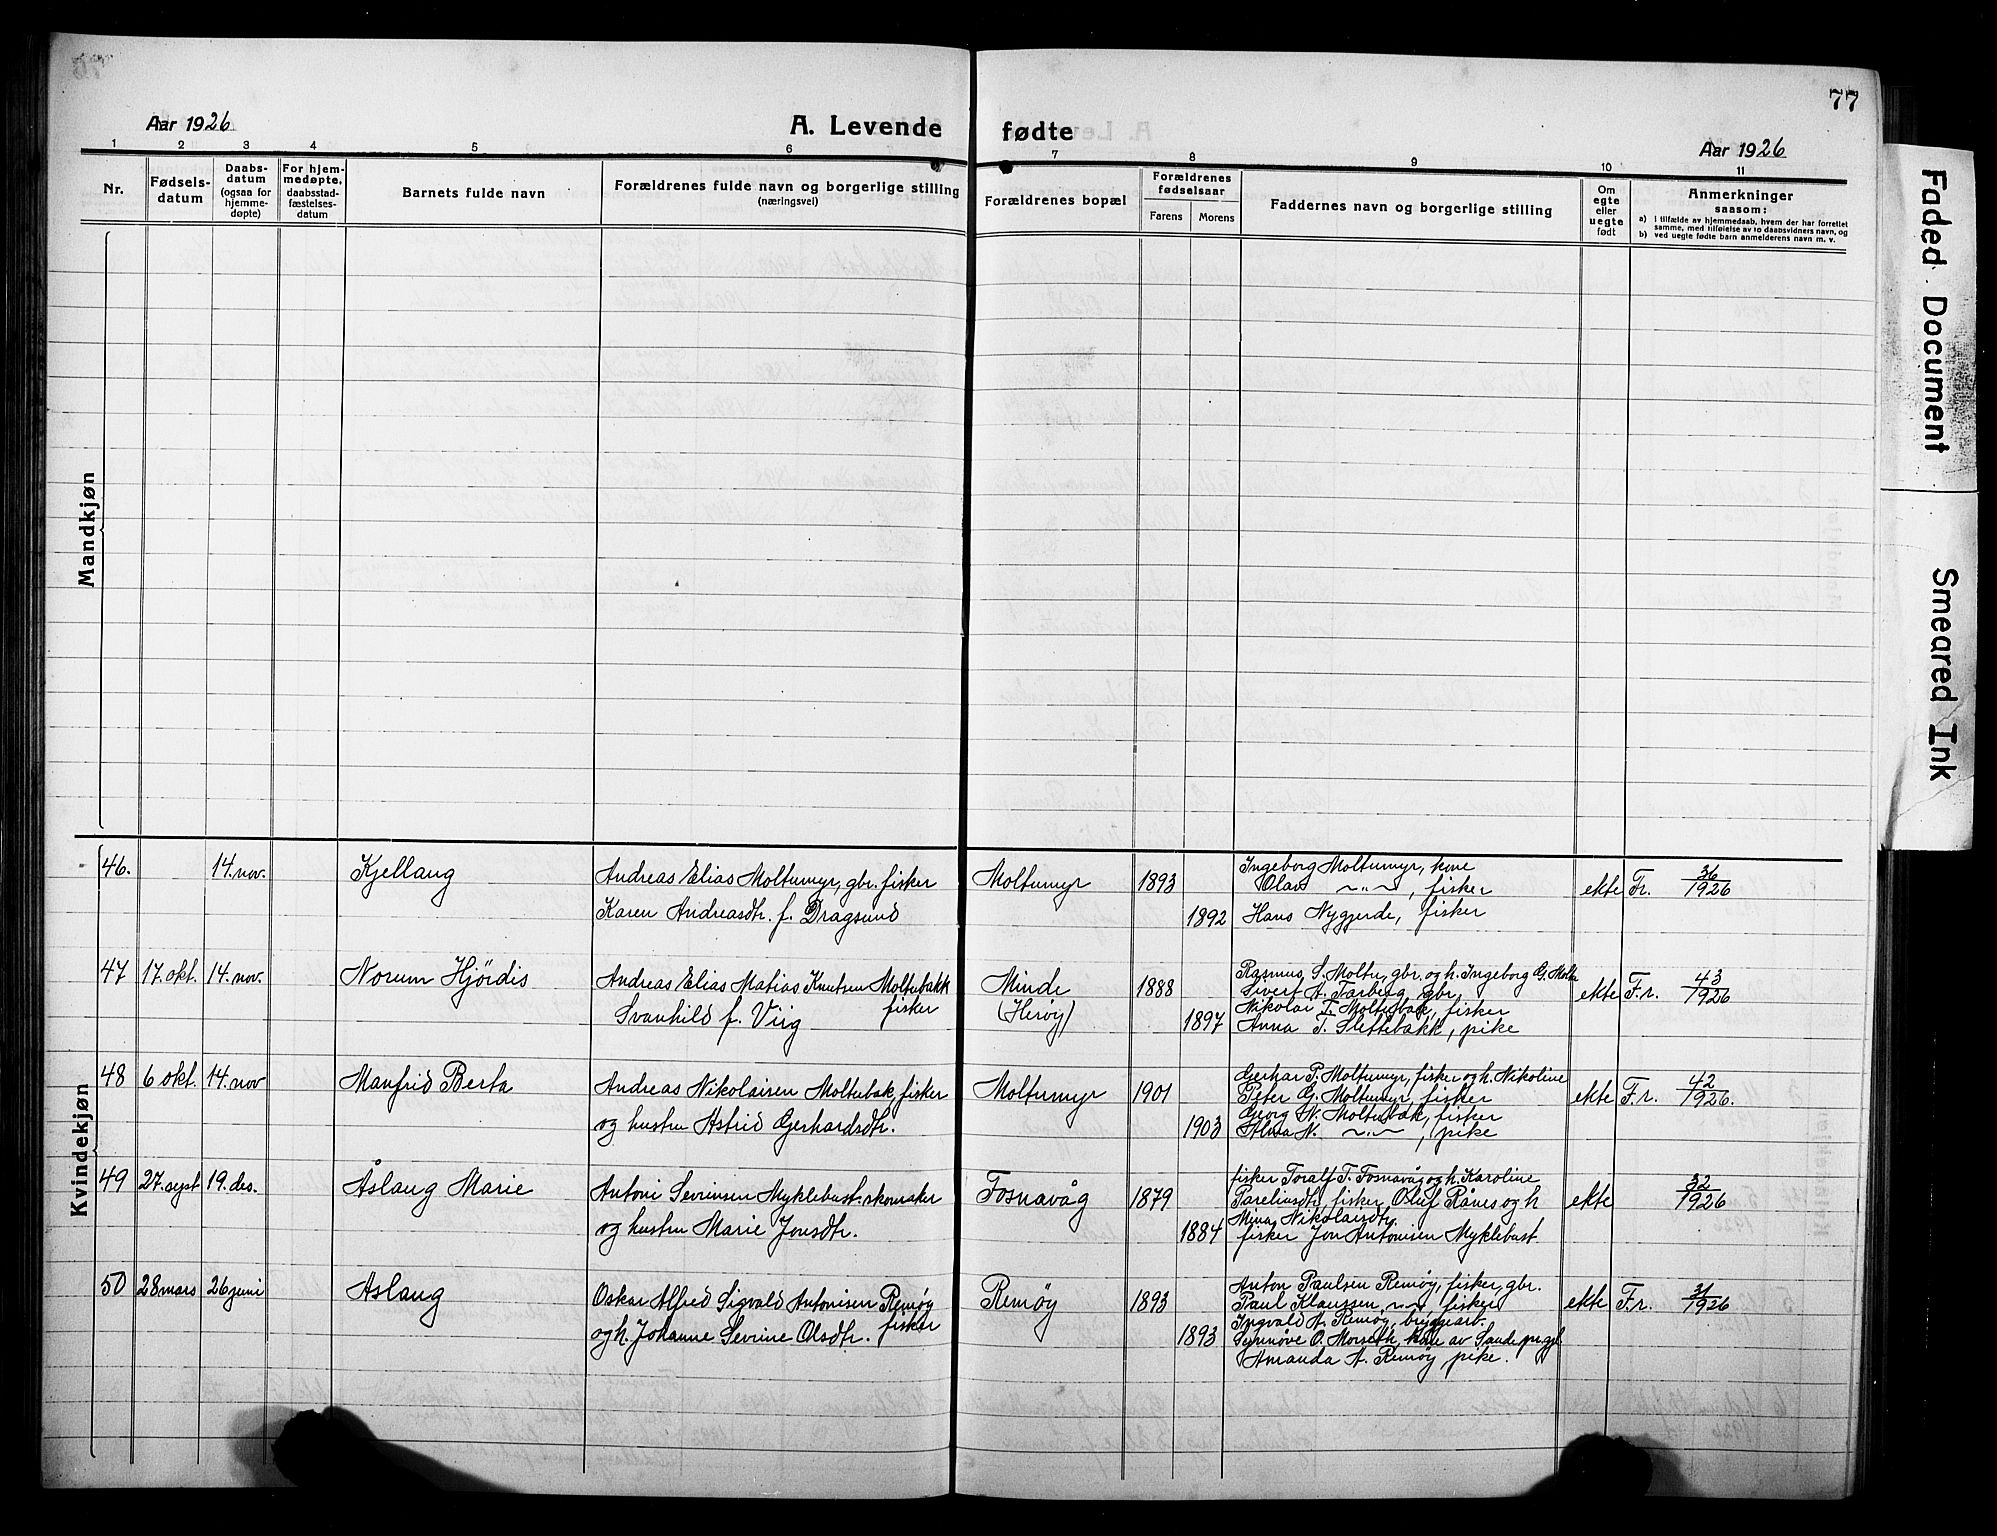 77
Aar 1926
A. Levende fødte
Aar 1926
1 2 3 4 5 6 7 8 9 10 11
Nr.
Fødselsdatum
Daabsdatum (ogsaa for hjemmedøpte)
For hjemmedøpte, daabsstadfæstelsesdatum
Barnets fulde navn
Forældrenes fulde navn og borgerlige stilling (næringsvei)
Forældrenes bopæl
Forældrenes fødselsaar
Farens Morens
Faddernes navn og borgerlige stilling
Om egte eller uegte født
Anmerkninger
saasom:
a) i tilfælde av hjemmedaab, hvem der har forrettet samme, med tilføielse av to daabsvidners navn, og
b) ved uegte fødte barn anmelderens navn m. v.
Mandkjøn
Kvindekjøn
46. 14. nov. Kjellaug
Andreas Elias Moltumyr, gbr. fisker
Karen Andreasdtr. f. Dragsund
Moltumyr 1893
1892
Ingeborg Moltumyr, kone
Olav —"—, fisker
Hans Nygjerde, fisker
ekte Fr. 36/1926
47 17. okt. 14. nov. Norum Hjördis
Andreas Elias Matias Knutsen Moltubakk
fisker
Svanhild f. Viig
Minde
(Herøy)
1888
1897
Rasmus S. Moltu, gbr. og h. Ingeborg G. Moltu
Sivert A. Tarberg, gbr.
Nikolai I. Moltubak, fisker
Anna T. Slettebakk, pike
ekte F.r. 43/1926
48 6 okt. 14. nov Manfrid Berta
Andreas Nikolaisen Moltubak, fisker
og hustru Astrid Gerhardsdtr.
Moltumyr 1901
1903
Gerhar P. Moltumyr, fisker og h. Nikoline
Peter G. Moltumyr, fisker
Georg N. Moltubak, fisker
Alma N. —"—, pike
ekte F.r. 42/1926.
49 27. sept 19. des. Åslaug Marie
Antoni Sevrinsen Myklebust. skomaker
og hustru Marie Jonsdtr.
Fosnavåg 1879
1884
fisker Toralf T. Fosnavåg og h. Karoline
Pareliusdtr, fisker Oluf Rånes og h
Mina Nikolaisdtr.
fisker Jon Antonisen Myklebust
ekte 32/1926
50 28 mars 26 juni Aslaug
Oskar Alfred Sigvald Antonisen Remøy
fisker
og h. Johanne Sevrine Olsdtr.
Remøy 1893
1893
Anton Paulsen Remøy, fisker, gbr.
Paul Klaussen, —"— fisker
Ingvald A. Remøy, bryggearb.
Synnøve O. Morseth, kone av Sande pr.gj.
Amanda A. Remøy pike.
ekte F.r. 31/1926
Faded Document
Smeared Ink